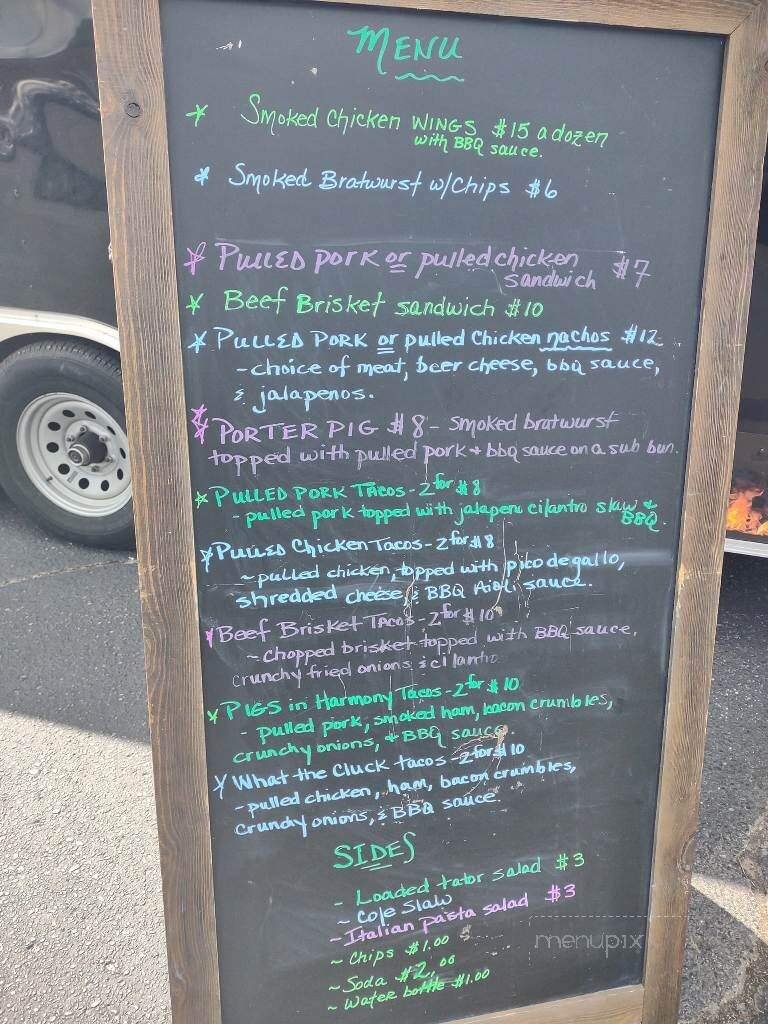 MENU
* Smoked Chicken WINGS $15 a dozen
with BBQ sauce.
* Smoked Bratwurst w/Chips $6
* PULLED PORK or pulled chicken
sandwich $7
* Beef Brisket sandwich $10
* PULLED PORK or pulled Chicken nachos $12
- choice of meat, beer cheese, bbq sauce,
& jalapenos.
* PORTER PIG $8 - smoked bratwurst
topped with pulled pork + bbq sauce on a sub bun.
* PULLED PORK TACOS - 2 for $8
- pulled pork topped with jalapeno cilantro slaw &
BBQ.
* PULLED Chicken Tacos - 2 for $8
~ pulled chicken, topped with pico de gallo,
shredded cheese & BBQ Aioli sauce.
* Beef Brisket Tacos - 2 for $10
~ chopped brisket topped with BBQ sauce,
crunchy fried onions & cilantro
* PIGS in Harmony Tacos - 2 for $10
- pulled pork, smoked ham, bacon crumbles,
crunchy onions, & BBQ sauce
* What the Cluck tacos - 2 for $10
- pulled chicken, ham, bacon crumbles,
crunchy onions, & BBQ sauce.
SIDES
- Loaded tator salad $3
~ Cole Slaw
~ Italian pasta salad $3
~ Chips $1.00
~ Soda $2.00
~ Water bottle $1.00
menupix